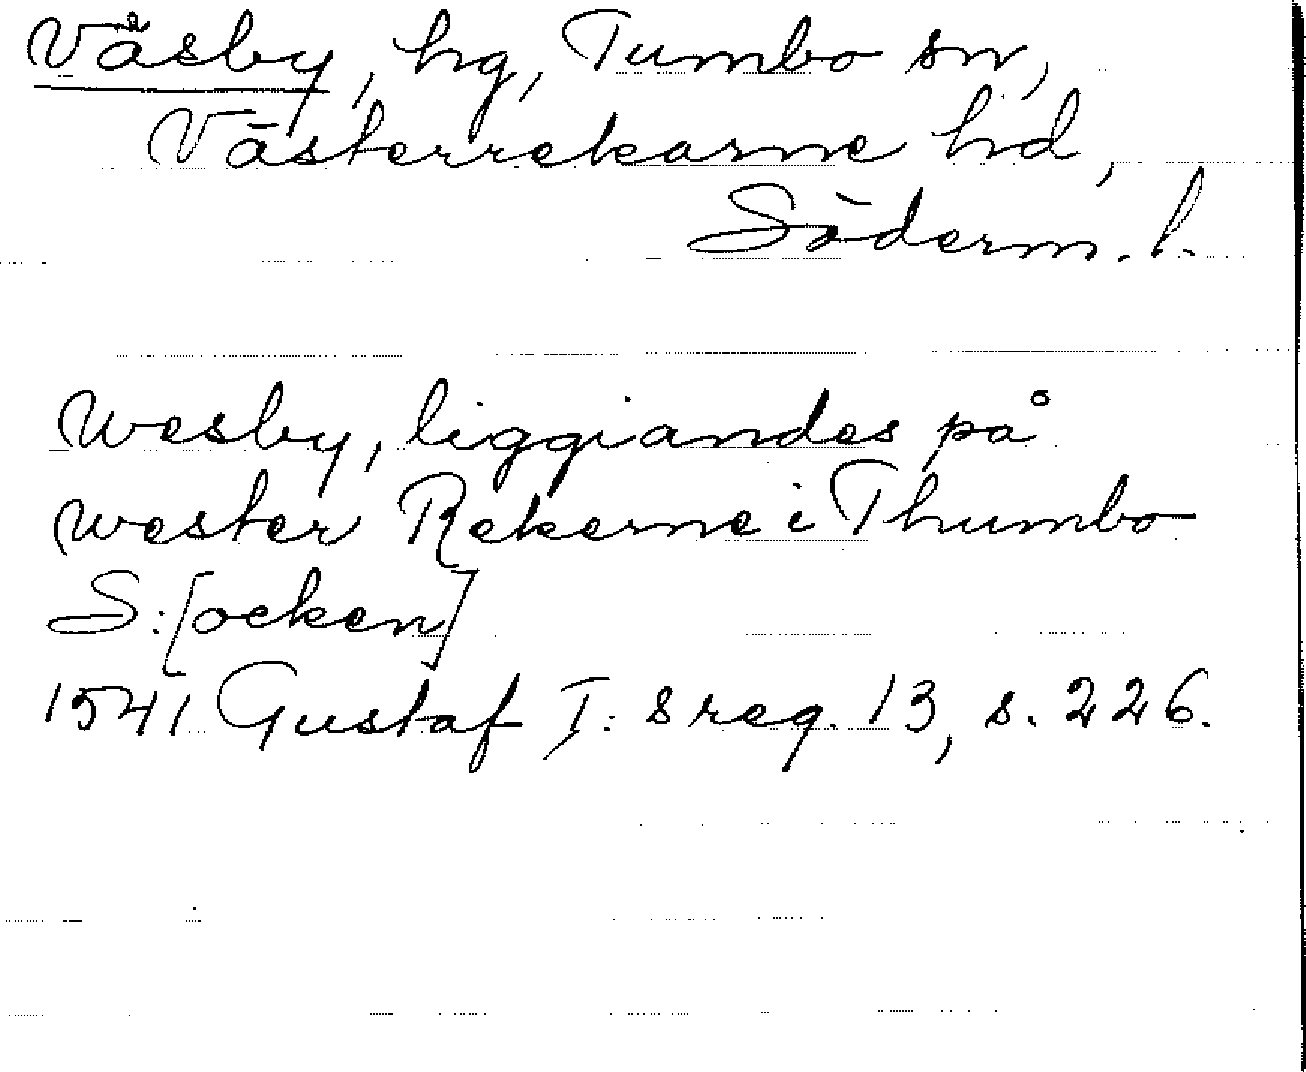 Väsby, hg, Tumbo sn,
Västerrekarne hd,
Söderm. l.
Wesby, liggiandes på
wester Rekerne i Thumbo
S:[ocken]
1541 Gustaf I:s reg. 13, s. 226.